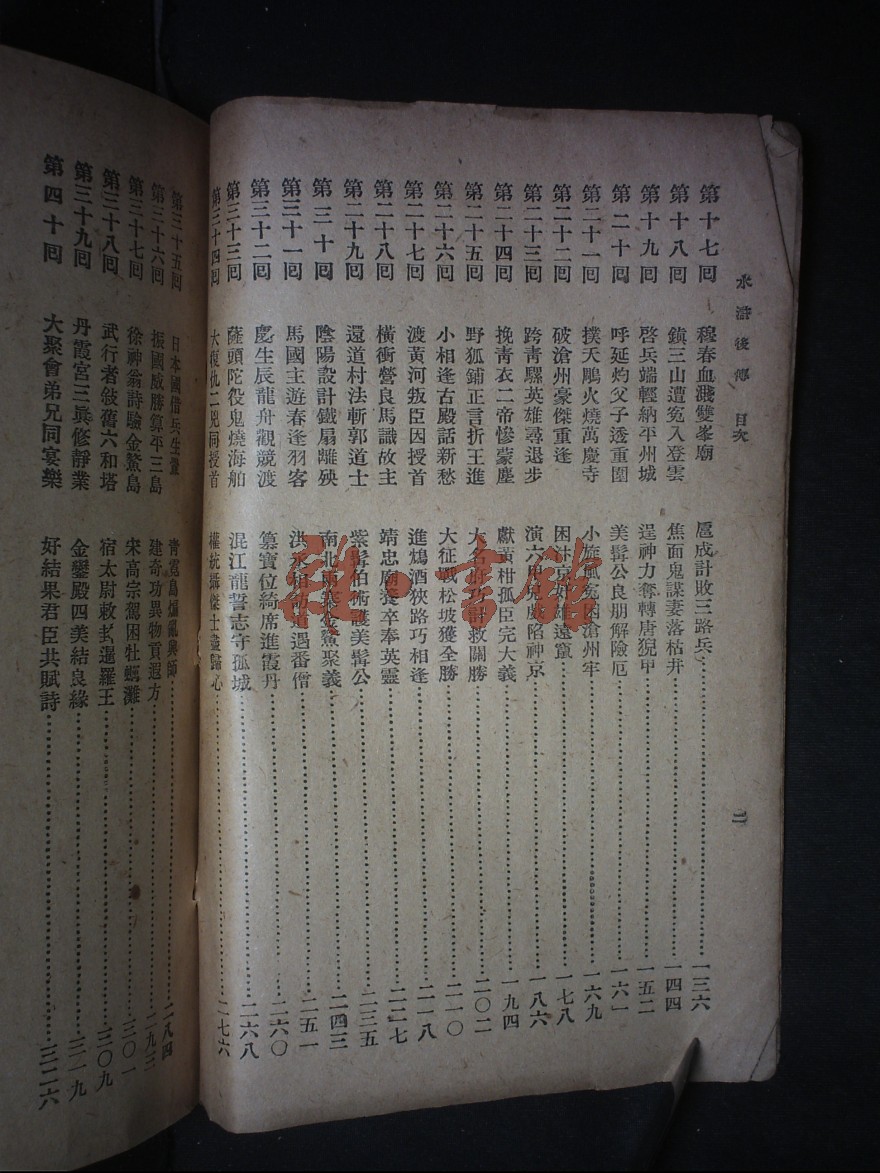 水滸後傳 目次 二
第十七囘 穆春血濺雙峯廟 扈成計敗三路兵……一三六
第十八囘 鎮三山遭寃入登雲 焦面鬼謀妻落枯井……一四四
第十九囘 啓兵端輕納平州城 逞神力奪轉唐猊甲……一五二
第二十囘 呼延灼父子透重圍 美髯公良朋解險厄……一六一
第二十一囘 撲天鵰火燒萬慶寺 小旋風寃困滄州牢……一六九
第二十二囘 破滄州豪傑重逢 困汴京奸雄遠竄……一七八
第二十三囘 跨青騾英雄尋退步 演六甲兒戲陷神京……一八六
第二十四囘 挽青衣二帝慘蒙塵 獻黃柑孤臣完大義……一九四
第二十五囘 野狐鋪正言折王進 大名府巧計救關勝……二〇二
第二十六囘 小相逢古殿話新愁 大征戰松坡獲全勝……二一〇
第二十七囘 渡黃河叛臣因授首 進鴆酒狹路巧相逢……二一八
第二十八囘 橫衝營良馬識故主 靖忠廟養卒奉英靈……二二七
第二十九囘 還道村法斬郭道士 紫髯伯術護美髯公……二三五
第三十囘 陰陽設計鐵扇離殃 南北兩寨金鰲聚義……二四三
第三十一囘 馬國主遊春逢羽客 洪丞相訪道遇番僧……二五一
第三十二囘 慶生辰龍舟觀競渡 篡寶位綺席進霞丹……二六〇
第三十三囘 薩頭陀役鬼燒海舶 混江龍誓志守孤城……二六八
第三十四囘 大復仇二兇同授首 權統攝傑士盡歸心……二七六
第三十五囘 日本國借兵生釁 青霓島煽亂興師……二八四
第三十六囘 振國威勝算平三島 建奇功異物貢遐方……二九三
第三十七囘 徐神翁詩驗金鰲島 宋高宗駕困牡蠣灘……三〇一
第三十八囘 武行者敍舊六和塔 宿太尉敕封暹羅王……三〇九
第三十九囘 丹霞宮三眞修靜業 金鑾殿四美結良緣……三一九
第四十囘 大聚會弟兄同宴樂 好結果君臣共賦詩……三二六